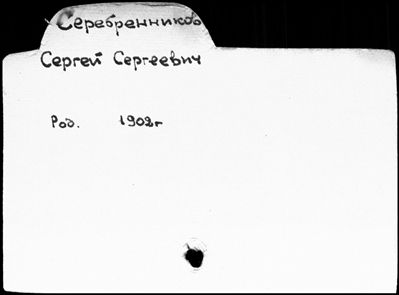 Серебренников
Сергей Сергеевич
Род. 1902г